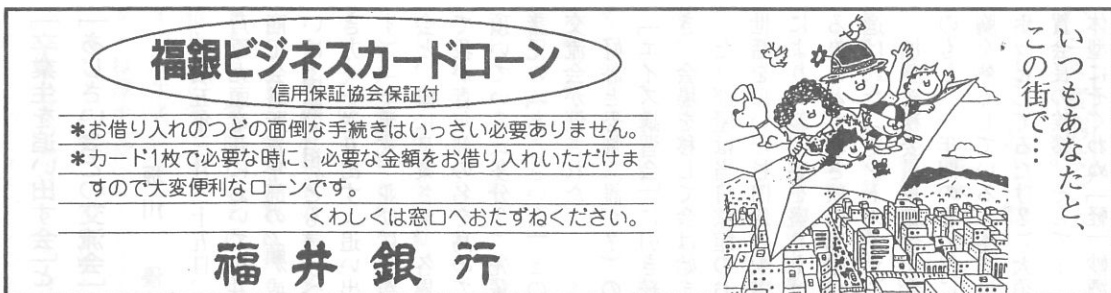 福銀ビジネスカードローン
信用保証協会保証付
*お借り入れのつどの面倒な手続きはいっさい必要ありません。
*カード1枚で必要な時に、必要な金額をお借り入れいただけま
すので大変便利なローンです。
くわしくは窓口へおたずねください。
福井銀行
いつもあなたと、
この街で…